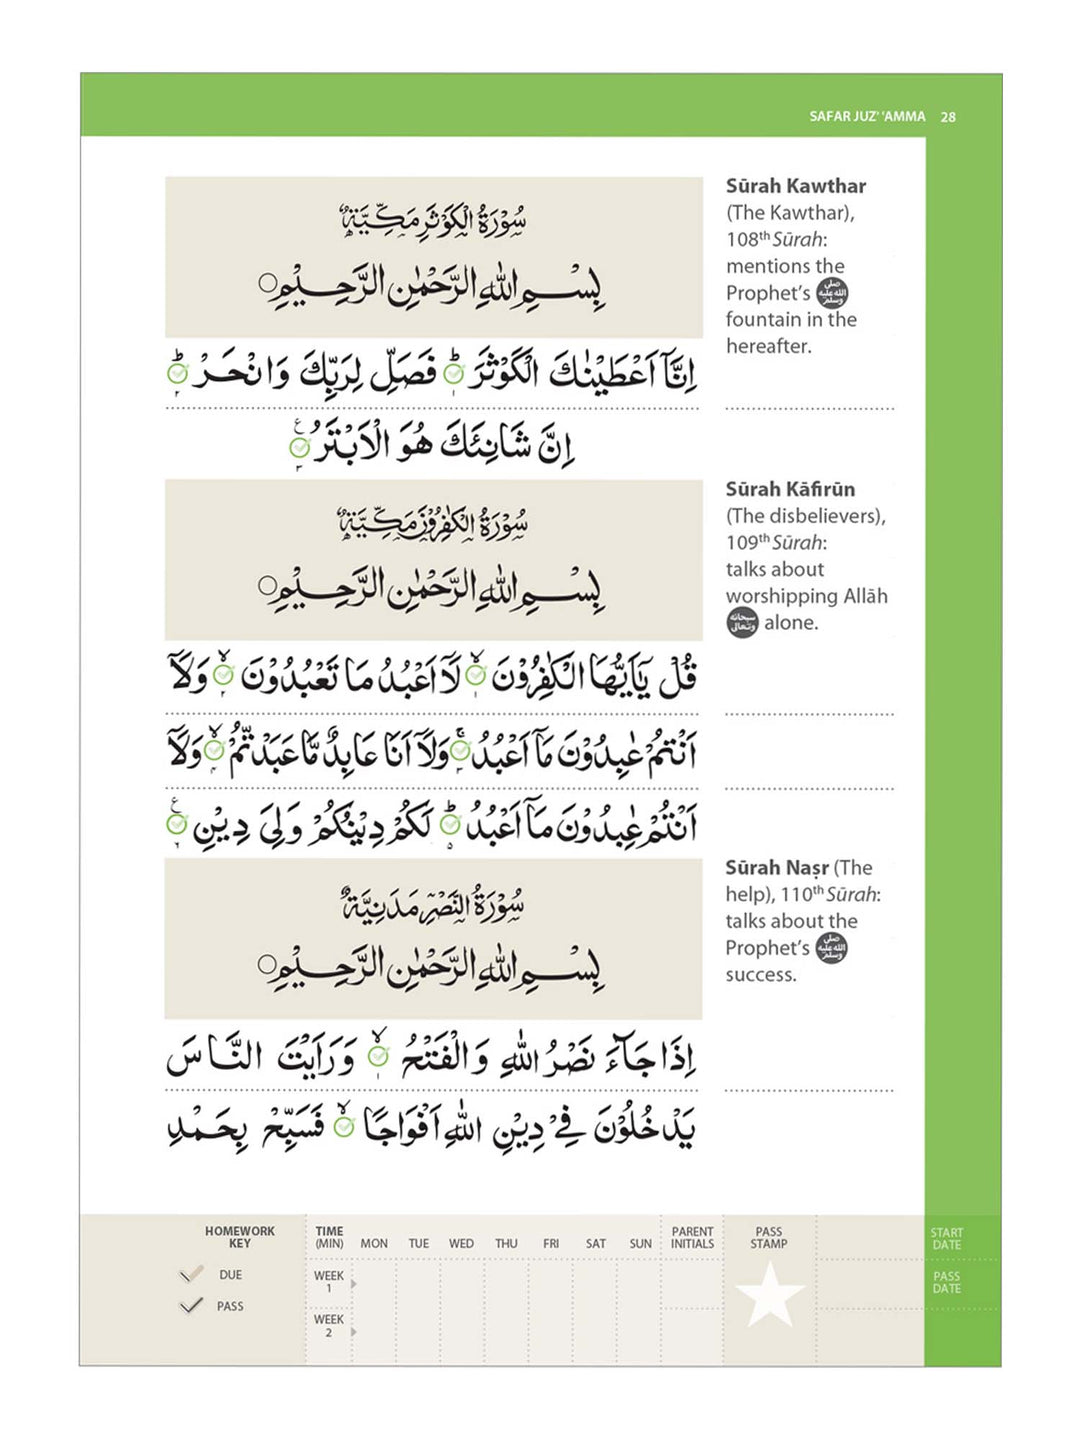 SAFAR JUZ' 'AMMA 28
سُوْرَةُ الْكَوْثَرِ مَكِّيَّةٌ
بِسْمِ اللّٰهِ الرَّحْمٰنِ الرَّحِيْمِ
اِنَّآ اَعْطَيْنٰكَ الْكَوْثَرَ ؕ۱ فَصَلِّ لِرَبِّكَ وَانْحَرْ ؕ۲
اِنَّ شَانِئَكَ هُوَ الْاَبْتَرُ ۳ ع
Sūrah Kawthar
(The Kawthar),
108th Sūrah:
mentions the
Prophet's ﷺ
fountain in the
hereafter.
سُوْرَةُ الْكٰفِرُوْنَ مَكِّيَّةٌ
بِسْمِ اللّٰهِ الرَّحْمٰنِ الرَّحِيْمِ
قُلْ يٰٓاَيُّهَا الْكٰفِرُوْنَ ۙ۱ لَآ اَعْبُدُ مَا تَعْبُدُوْنَ ۙ۲ وَلَآ
اَنْتُمْ عٰبِدُوْنَ مَآ اَعْبُدُ ۚ۳ وَلَآ اَنَا عَابِدٌ مَّا عَبَدْتُّمْ ۙ۴ وَلَآ
اَنْتُمْ عٰبِدُوْنَ مَآ اَعْبُدُ ؕ۵ لَكُمْ دِيْنُكُمْ وَلِيَ دِيْنِ ۶ ع
Sūrah Kāfirūn
(The disbelievers),
109th Sūrah:
talks about
worshipping Allāh
سبحانه وتعالى alone.
سُوْرَةُ النَّصْرِ مَدَنِيَّةٌ
بِسْمِ اللّٰهِ الرَّحْمٰنِ الرَّحِيْمِ
اِذَا جَآءَ نَصْرُ اللّٰهِ وَالْفَتْحُ ۙ۱ وَرَاَيْتَ النَّاسَ
يَدْخُلُوْنَ فِيْ دِيْنِ اللّٰهِ اَفْوَاجًا ۙ فَسَبِّحْ بِحَمْدِ
Sūrah Naṣr (The
help), 110th Sūrah:
talks about the
Prophet's ﷺ
success.
HOMEWORK
KEY
DUE
PASS
TIME
(MIN) MON TUE WED THU FRI SAT SUN
WEEK
1
WEEK
2
PARENT
INITIALS
PASS
STAMP
START
DATE
PASS
DATE